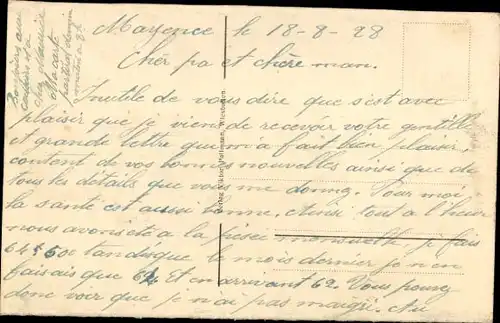 Mayence le 18-8-28
Cher pa et chère man.
Inutile de vous dire que s'est avec
plaisir que je viens de recevoir votre gentille
et grande lettre que m'a fait bien plaisir,
content de vos bonnes nouvelles ainsi que de
tous les détails que vous me donnez. Pour moi
la santé est aussi bonne. Ainsi tout a l'heure
nous avons été a la pesée mensuelle, je fais
64 500 tandisque le mois dernier je n'en
faisais que 64 Et en arrivant 62. Vous pouvez
donc voir que je n'ai pas maigri. Au
ma carte